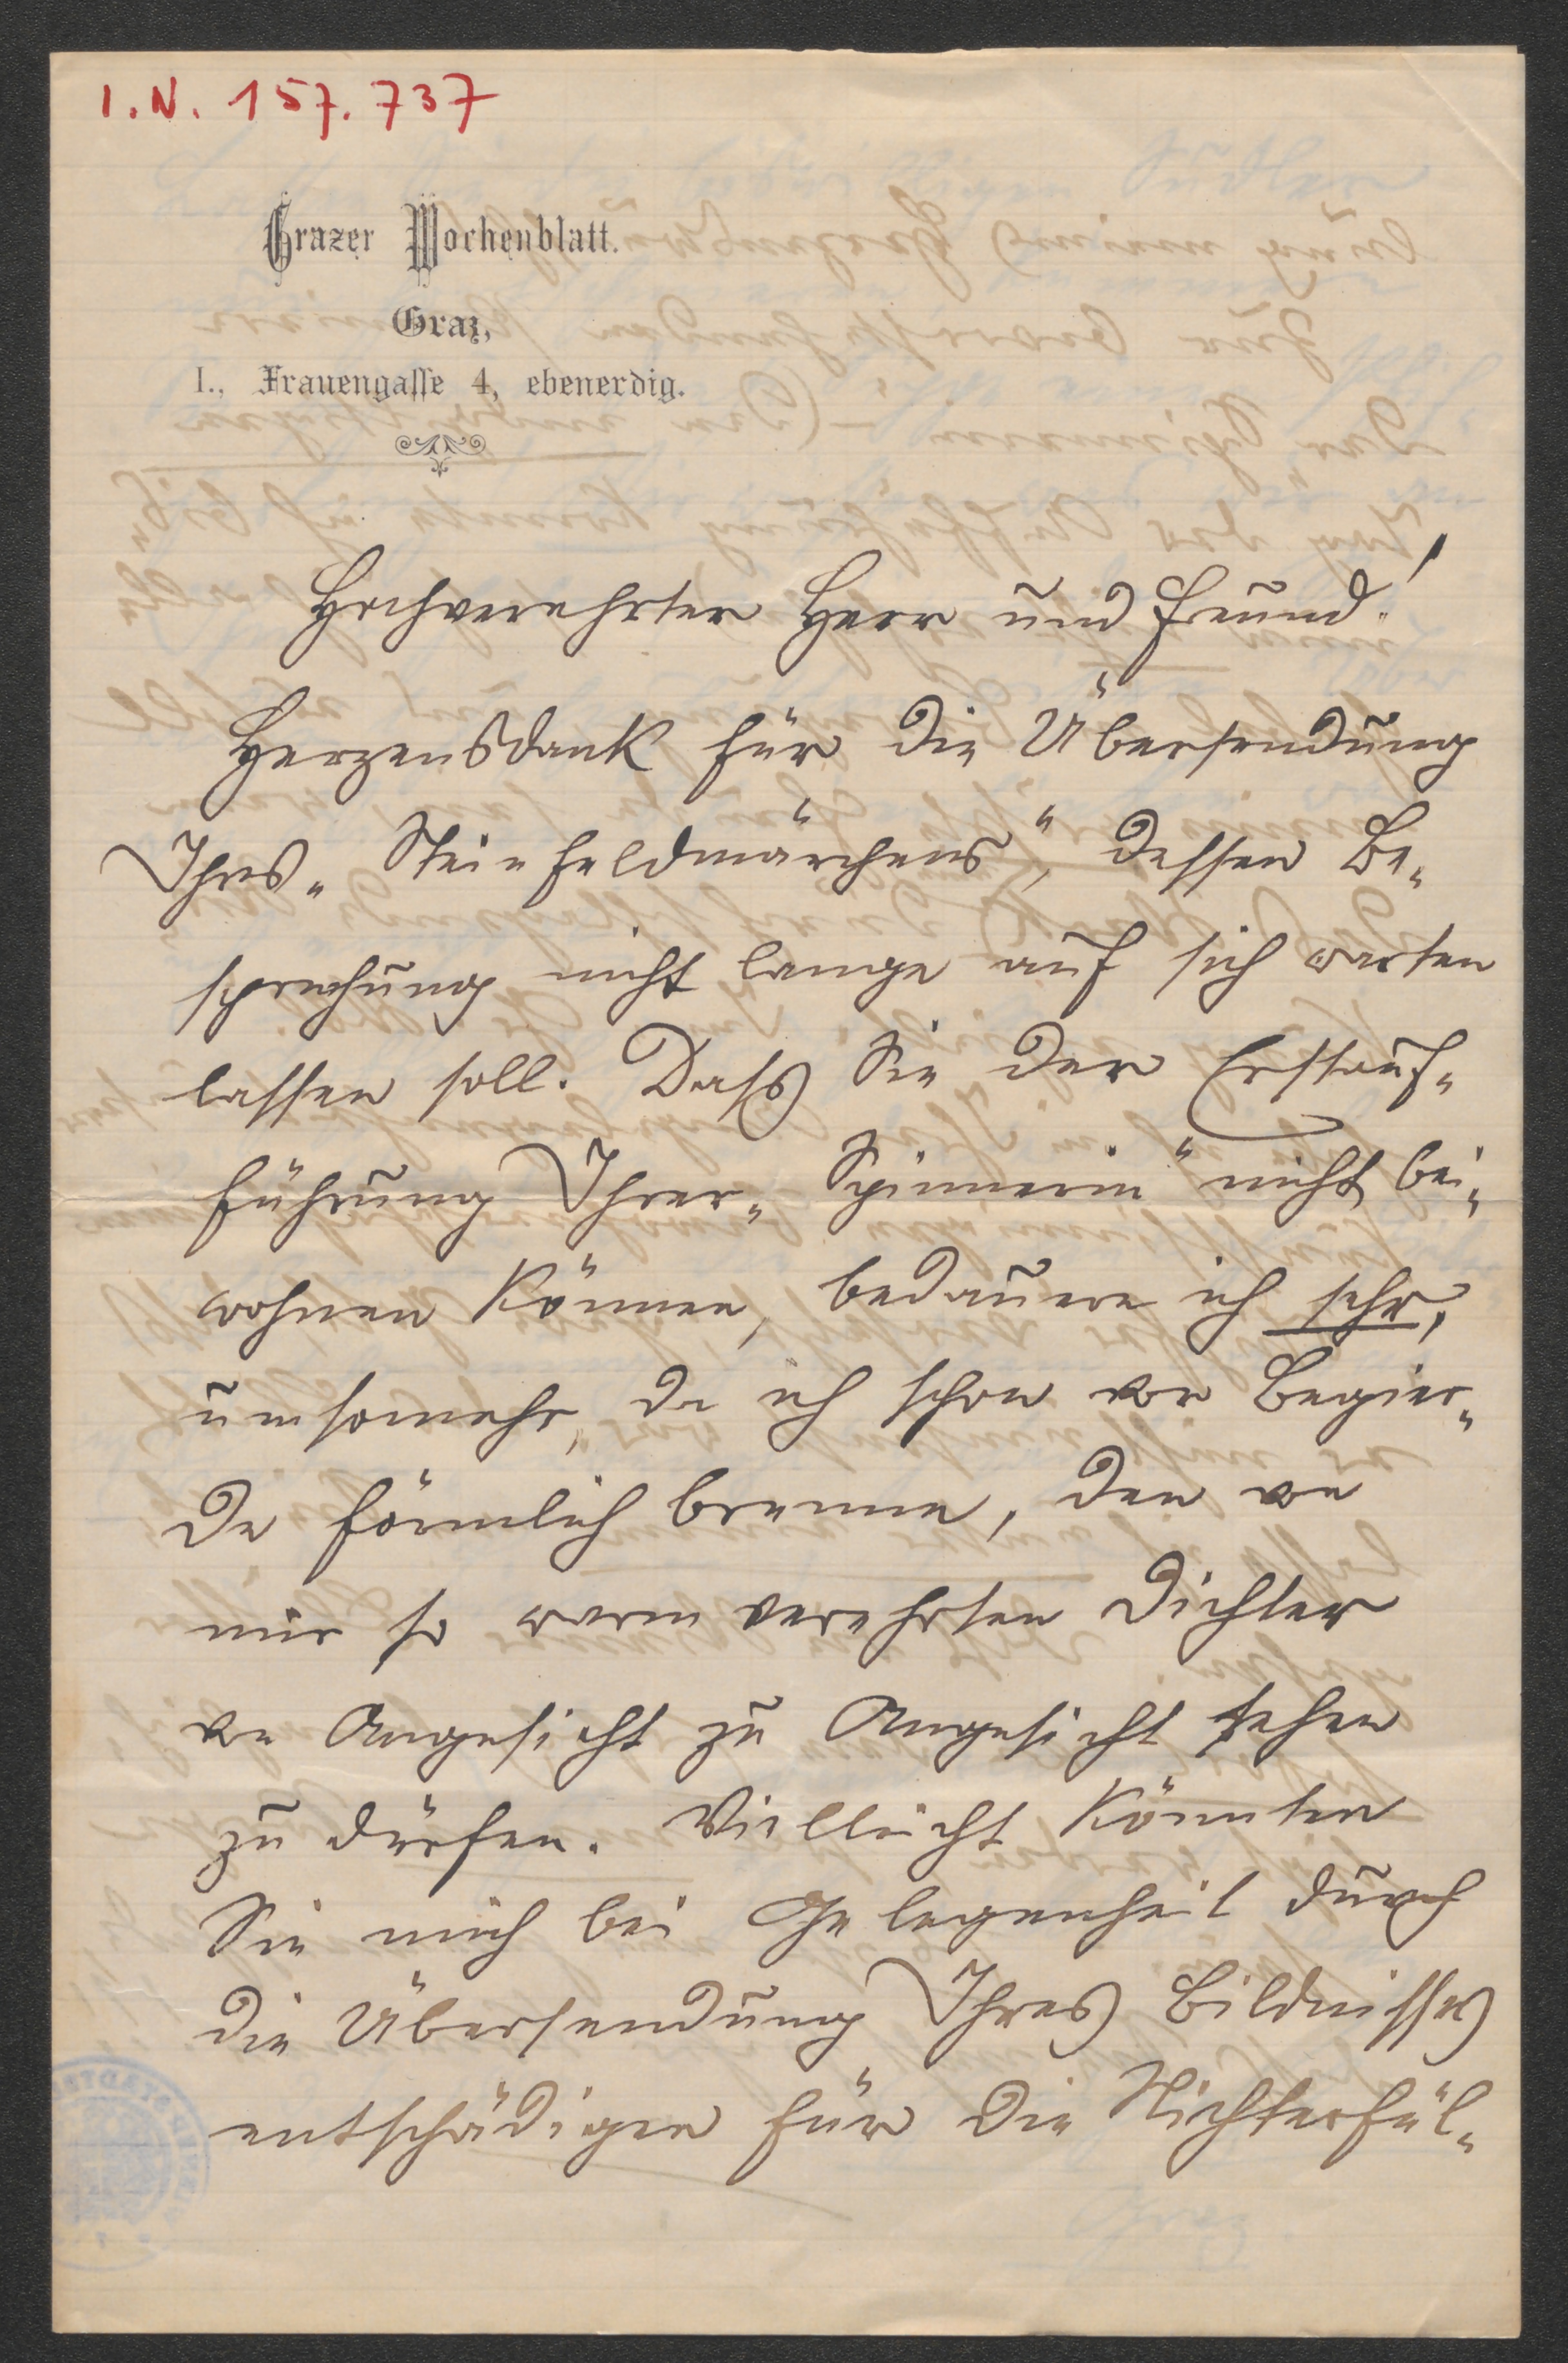 I.N. 157.737
Grazer Wochenblatt.
Graz,
I., Frauengasse 4, ebenerdig.
Hochverehrter Herr und Freund!
Herzensdank für die Übersendung
Ihres „Steinfeldmärchens“, dessen Be-
sprechung nicht lange auf sich warten
lassen soll. Dass Sie der Erstauf-
führung Ihrer „Spinnerin“ nicht bei-
wohnen können, bedauere ich sehr,
umsomehr, da ich schon vor Begier-
de förmlich brenne, den von
mir so warm verehrten Dichter
von Angesicht zu Angesicht sehen
zu dürfen. Vielleicht könnten
Sie mich bei Gelegenheit durch
die Übersendung Ihres Bildnisses
entschädigen für die Nichterfül-